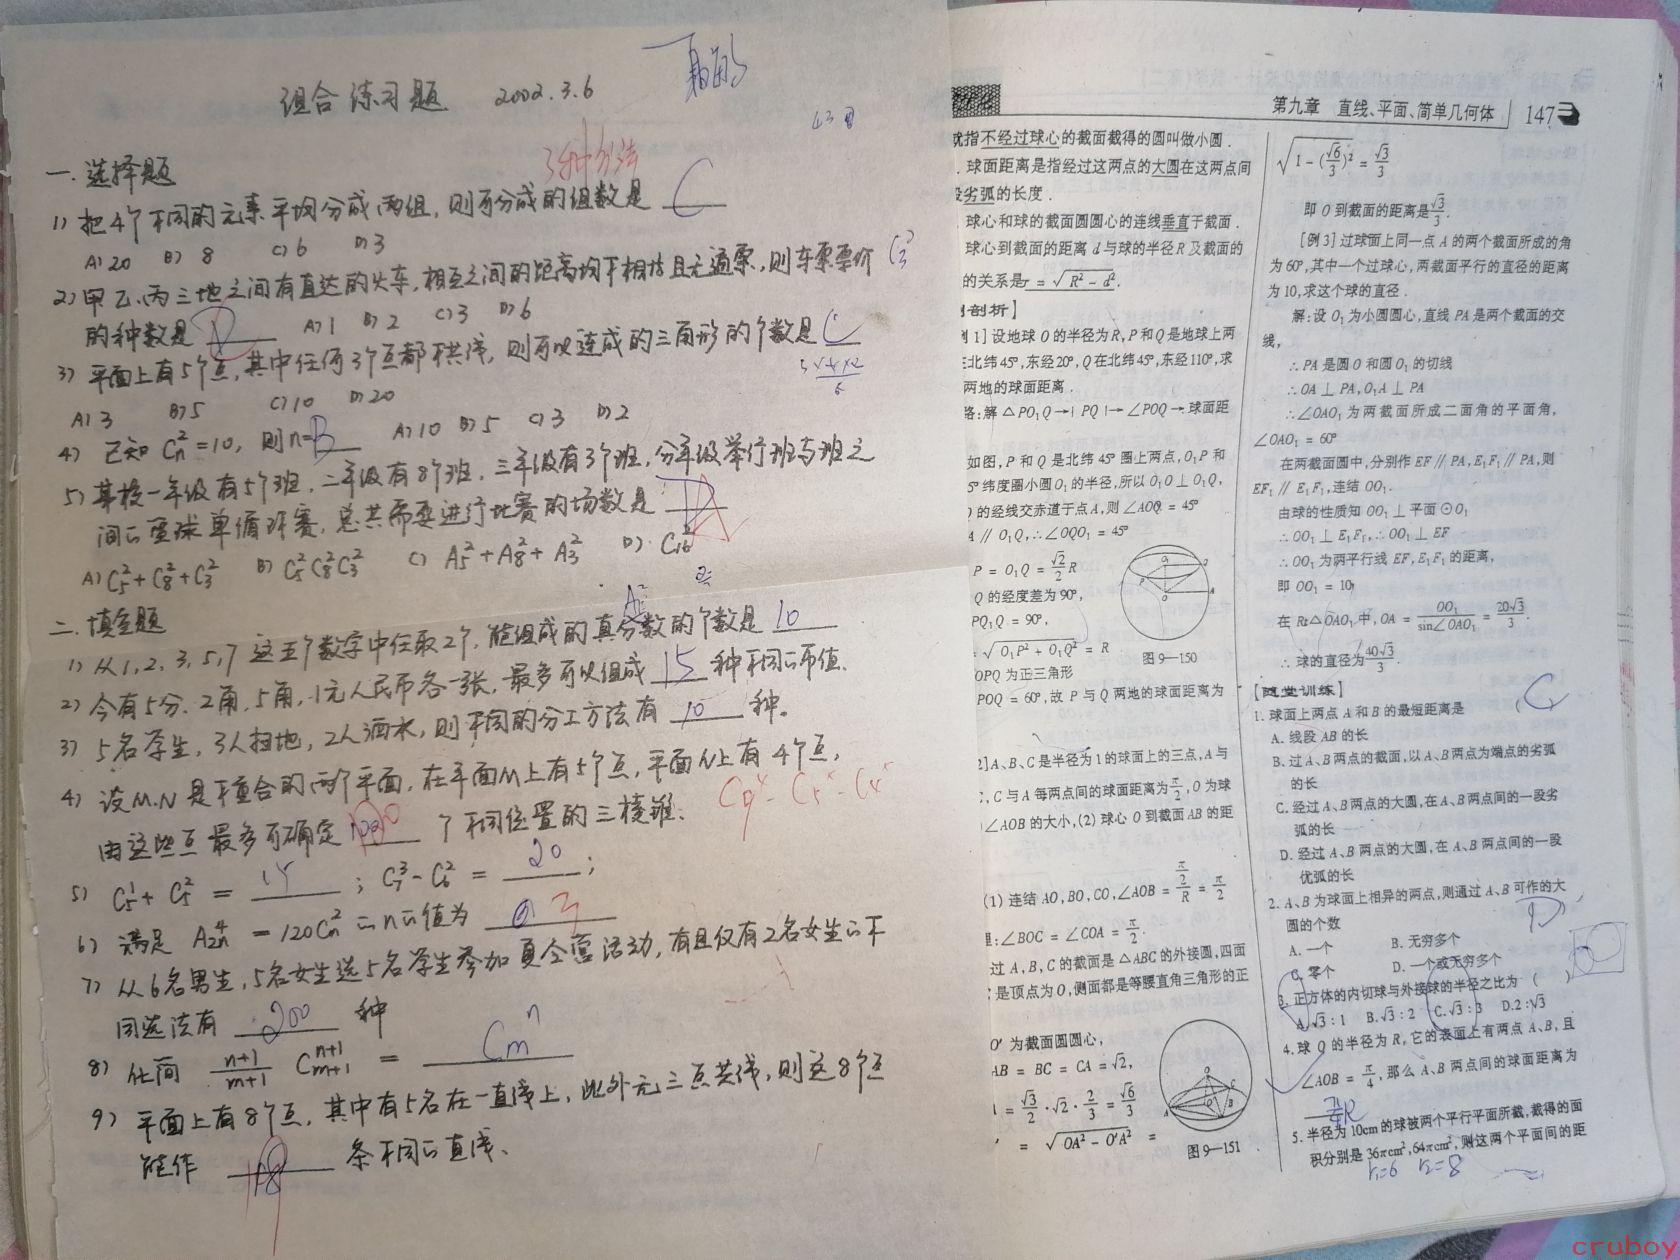 组合练习题 2002.3.6
3种分法
一.选择题
1) 把4个不同的元素平均分成两组,则可分成的组数是 C
A) 20 B) 8 C) 6 D) 3
2) 甲乙、丙三地之间有直达的火车,相互之间的距离均不相等且无通票,则车票票价
的种数是 D A) 1 B) 2 C) 3 D) 6
3) 平面上有5个点,其中任何3个点都不共线,则可以连成的三角形的个数是 C
A) 3 B) 5 C) 10 D) 20
4) 已知 C_n^2 = 10, 则n= B A) 10 B) 5 C) 3 D) 2
5) 某校一年级有5个班,二年级有8个班,三年级有3个班,分年级举行班与班之
间的篮球单循环赛,总共需要进行比赛的场数是 A
A) C_5^2 + C_8^2 + C_3^2 B) C_5^2 C_8^2 C_3^2 C) A_5^2 + A_8^2 + A_3^2 D) C_16^2
二.填空题
1) 从1,2,3,5,7这五个数字中任取2个,能组成的真分数的个数是 10
2) 今有5分、2角,5角,1元人民币各一张,最多可以组成 15 种不同的币值.
3) 5名学生,3人扫地,2人洒水,则不同的分工方法有 10 种。
4) 设M、N是不重合的两个平面,在平面M上有5个点,平面N上有4个点,
由这些点最多可确定 120 个不同位置的三棱锥;
5) C_5^1 + C_5^2 = 15 ; C_7^3 - C_6^2 = 20 ;
6) 满足 A_2n^4 = 120C_n^2 的n的值为 3
7) 从6名男生,5名女生选5名学生参加夏令营活动,有且仅有2名女生的不
同选法有 200 种
8) 化简 (n+1)/(m+1) C_{m+1}^{n+1} = C_m^n
9) 平面上有8个点,其中有5名在一直线上,此外无三点共线,则这8个点
能作 条不同的直线、
第九章 直线、平面、简单几何体 147
就指不经过球心的截面截得的圆叫做小圆.
.球面距离是指经过这两点的大圆在这两点间
劣弧的长度.
球心和球的截面圆圆心的连线垂直于截面.
球心到截面的距离 d 与球的半径 R 及截面的
的关系是 r = √(R² - d²).
剖析】
1] 设地球 O 的半径为 R, P 和 Q 是地球上两
北纬45°,东经20°, Q 在北纬45°,东经110°,求
两地的球面距离.
路:解 △PO₁Q→|PQ|→∠POQ→球面距
如图, P 和 Q 是北纬45°圈上两点, O₁P 和
5°纬度圈小圆 O₁ 的半径,所以 O₁O⊥O₁Q,
的经线交赤道于点 A,则 ∠AOQ = 45°
A∥O₁Q, ∴∠OQO₁ = 45°
P = O₁Q = √2/2 R
Q 的经度差为90°,
PO₁Q = 90°,
= √(O₁P² + O₁Q²) = R
OPQ 为正三角形
POQ = 60°,故 P 与 Q 两地的球面距离为
图9—150
2] A、B、C 是半径为1的球面上的三点, A 与
C, C 与 A 每两点间的球面距离为 π/2, O 为球
∠AOB 的大小, (2) 球心 O 到截面 AB 的距
(1) 连结 AO, BO, CO, ∠AOB = (π/2)/R = π/2
理:∠BOC = ∠COA = π/2.
过 A, B, C 的截面是 △ABC 的外接圆,四面
是顶点为 O,侧面都是等腰直角三角形的正
O′ 为截面圆圆心,
AB = BC = CA = √2,
= √3/2·√2·2/3 = √6/3
= √(OA² - O′A²) =
图9—151
√(1 - (√6/3)²) = √3/3
即 O 到截面的距离是 √3/3.
[例3] 过球面上同一点 A 的两个截面所成的角
为60°,其中一个过球心,两截面平行的直径的距离
为10,求这个球的直径.
解:设 O₁ 为小圆圆心,直线 PA 是两个截面的交
线,
∴PA 是圆 O 和圆 O₁ 的切线
∴OA⊥PA, O₁A⊥PA
∴∠OAO₁ 为两截面所成二面角的平面角,
∠OAO₁ = 60°
在两截面圆中,分别作 EF∥PA, E₁F₁∥PA,则
EF∥E₁F₁,连结 OO₁.
由球的性质知 OO₁⊥平面⊙O₁
∴OO₁⊥E₁F₁, ∴OO₁⊥EF
∴OO₁ 为两平行线 EF, E₁F₁ 的距离,
即 OO₁ = 10
在 Rt△OAO₁ 中, OA = OO₁/sin∠OAO₁ = 20√3/3.
∴球的直径为 40√3/3.
[随堂训练]
1. 球面上两点 A 和 B 的最短距离是 C
A. 线段 AB 的长
B. 过 A、B 两点的截面,以 A、B 两点为端点的劣弧
的长
C. 经过 A、B 两点的大圆,在 A、B 两点间的一段劣
弧的长
D. 经过 A、B 两点的大圆,在 A、B 两点间的一段
优弧的长
2. A、B 为球面上相异的两点,则通过 A、B 可作的大
圆的个数 D
A. 一个 B. 无穷多个
C. 零个 D. 一个或无穷多个
3. 正方体的内切球与外接球的半径之比为 ( )
A. √3:1 B. √3:2 C. √3:3 D. 2:√3
4. 球 O 的半径为 R,它的表面上有两点 A、B,且
∠AOB = π/4,那么 A、B 两点间的球面距离为
π/4 R
5. 半径为10cm的球被两个平行平面所截,截得的面
积分别是36πcm²,64πcm²,则这两个平面间的距
r₁=6 r₂=8
cruboy